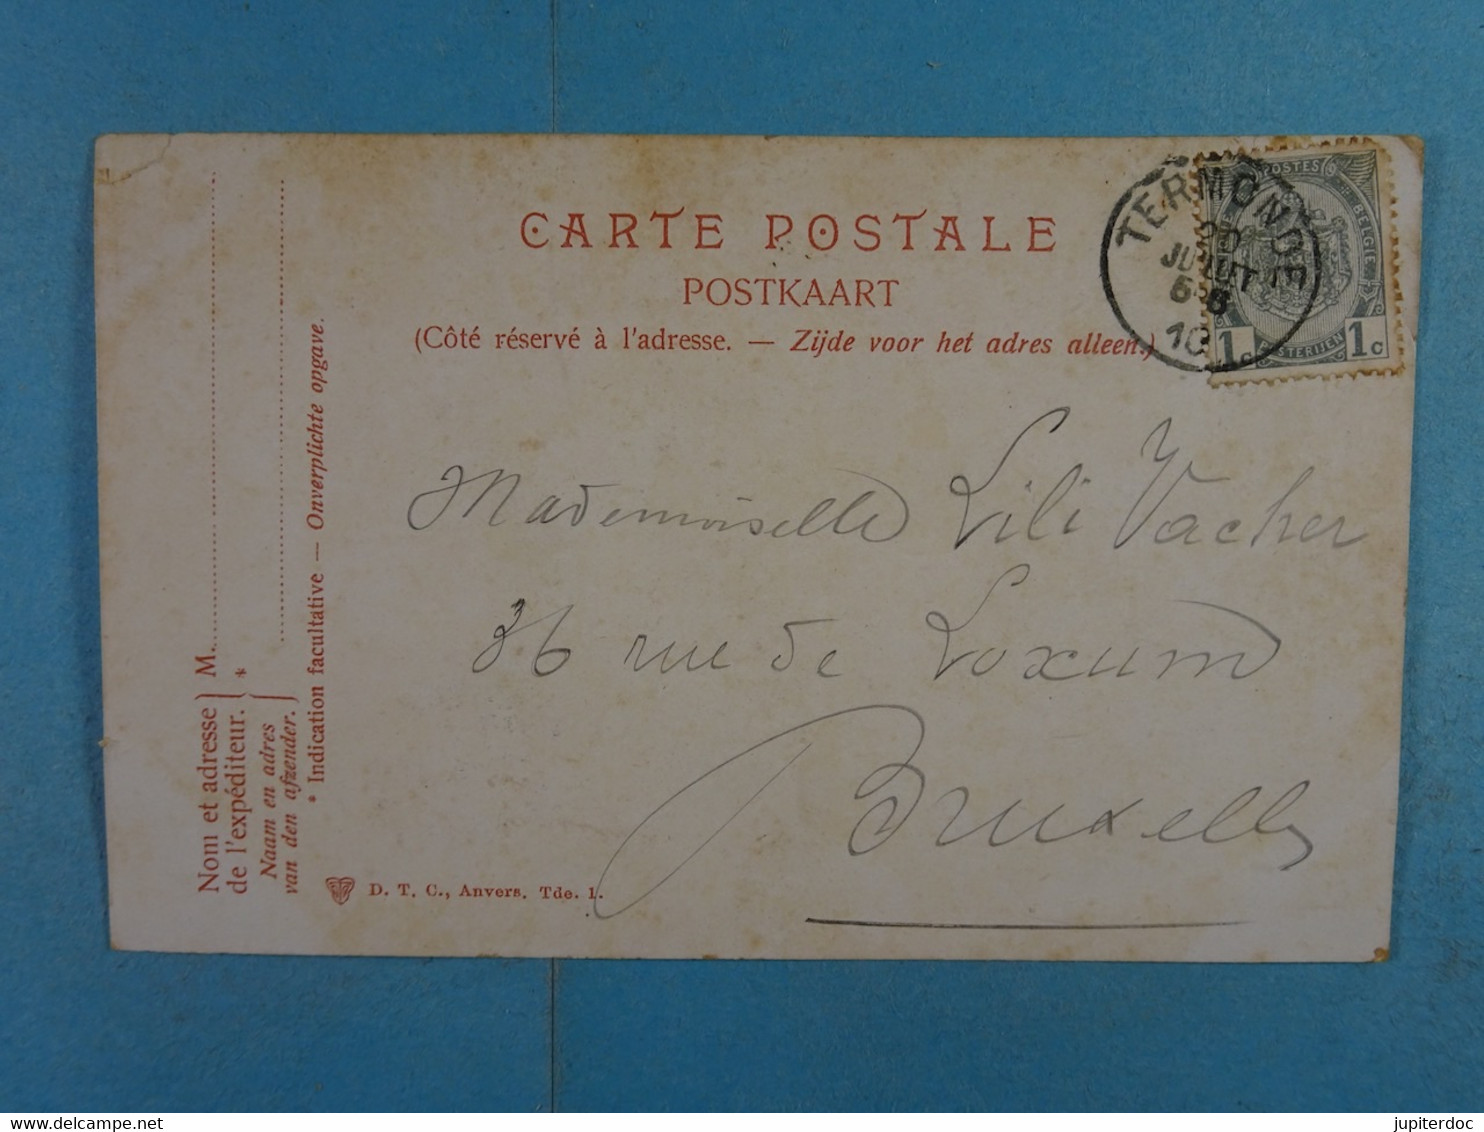 CARTE POSTALE
POSTKAART
(Côté réservé à l'adresse. — Zijde voor het adres alleen.)
TERMONDE
JUILLET
10
POSTES
BELGIE
POSTERIJEN
1c 1c
Mademoiselle Lili Vacher
36 rue de Loxum
Bruxelles
Nom et adresse
de l'expéditeur.
M.
*
Naam en adres
van den afzender.
* Indication facultative — Onverplichte opgave.
D. T. C., Anvers. Tde. 1.
jupiterdoc